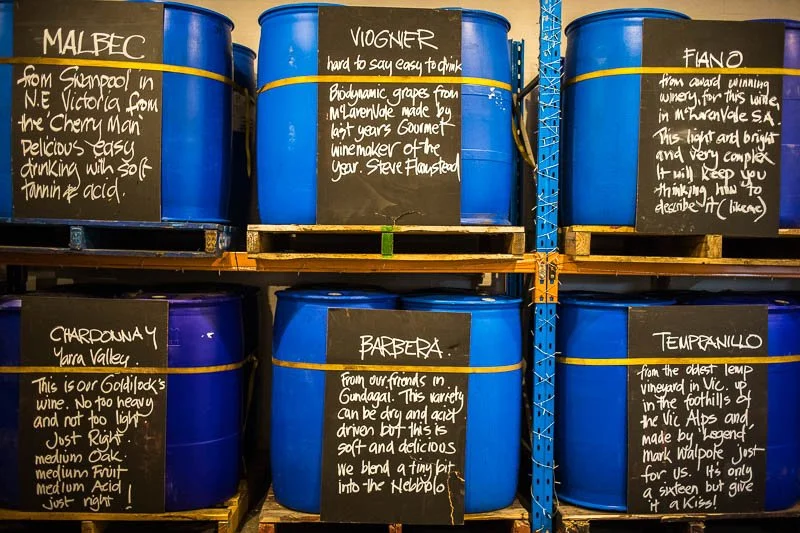 MALBEC
from Swanpool in
N.E Victoria from
the 'Cherry Man'
Delicious easy
drinking with soft
tannin & acid.
VIOGNIER
hard to say easy to drink
Biodynamic grapes from
McLarenVale made by
last years Gourmet
winemaker of the
year. Steve Flamstead
FIANO
from award winning
winery, for this wine,
in McLarenVale S.A.
This light and bright
and very complex
It will keep you
thinking how to
describe it (like me)
CHARDONNAY
Yarra Valley.
This is our Goldilock's
wine. No too heavy
and not too light
Just Right.
medium Oak
medium Fruit
medium Acid
just right!
BARBERA.
From our friends in
Gundagai. This variety
can be dry and acid
driven but this is
soft and delicious
we blend a tiny bit
into the Nebbolo
TEMPRANILLO
from the oldest Temp
vineyard in Vic. up
in the foothills of
the Vic Alps and
made by 'Legend'
Mark Walpole Just
for us. It's only
a sixteen but give
it a Kiss!